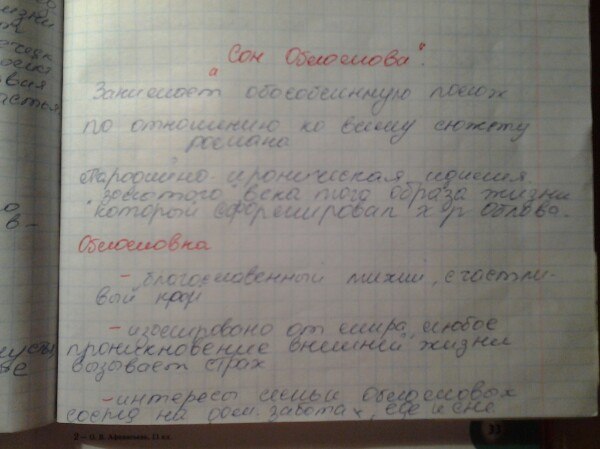 "Сон Обломова".
Занимает обособленную полож
по отношению ко всему сюжету
романа
Пародийно-ироническая идиллия
"золотого" века того образа жизни
который сформировал х-р Облова.
Обломовка
- благословенный тихий, счастли-
вый край
- изолировано от мира, любое
проникновение внешней жизни
вызывает страх
- интересы семьи обломовых
сосред на дом. заботах, еде и сне
2 – О. В. Афанасьева, 11 кл.
33